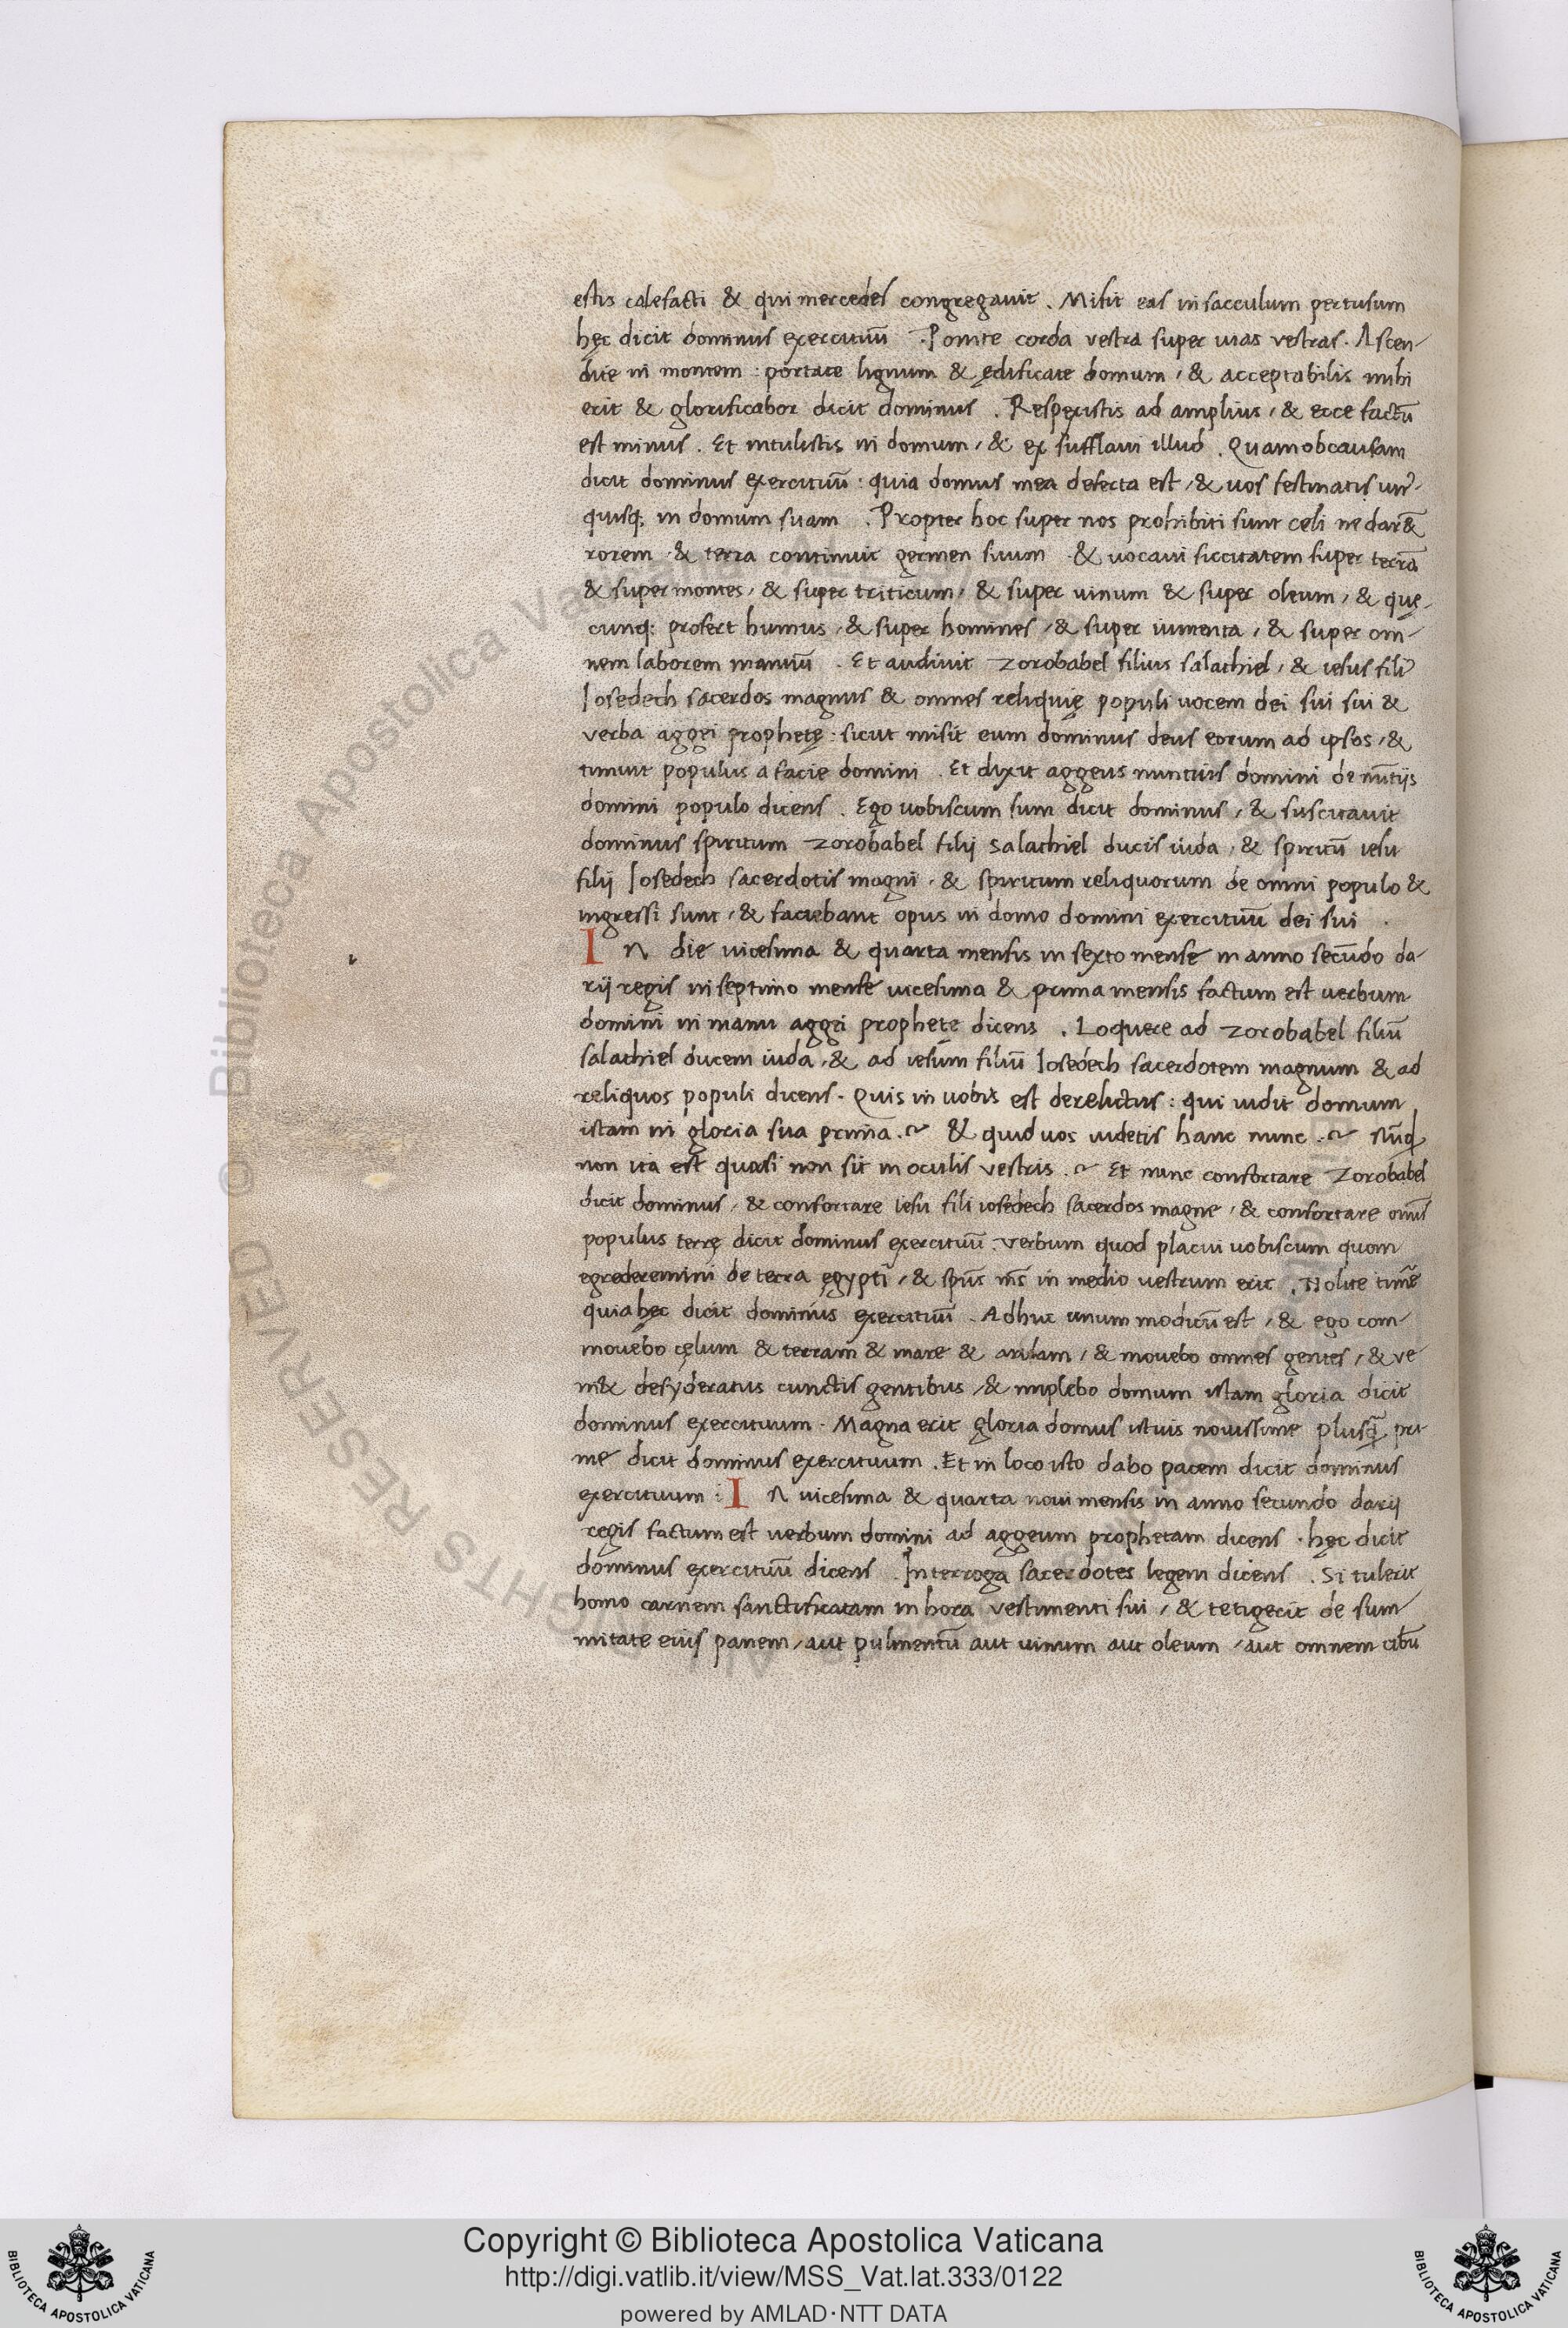 estis calefacti & qui mercedes congregauit . Misit eas in sacculum pertusum
hęc dicit dominus exercituū . Ponite corda vestra super uias vestras . Ascen-
dite in montem : portate lignum & ędificate domum / & acceptabilis mihi
erit & glorificabor dicit dominus . Respexistis ad amplius / & ecce factū
est minus . Et intulistis in domum / & ex sufflaui illud . Quamobcausam
dicit dominus exercituū : quia domus mea deserta est / & uos festinatis
quisq; in domum suam . Propter hoc super nos prohibiti sunt cęli ne dar&̄
rorem & terra continuit germen suum & uocaui siccitatem super terrā
& super montes / & super triticum / & super uinum & super oleum / & quę-
cunq; profert humus / & super homines / & super iumenta / & super om-
nem laborem manuū . Et audiuit zorobabel filius salathiel / & iesus
Iosedech sacerdos magnus & omnes reliquię populi uocem dei sui sui &
verba aggei prophetę : sicut misit eum dominus deus eorum ad ipsos / &
timuit populus a facie domini . Et dixit aggeus nuntius domini de nūtijs
domini populo dicens . Ego uobiscum sum dicit dominus / & suscitauit
dominus spiritum zorobabel filij salathiel ducis iuda / & spiritū iesu
filij Iosedech sacerdotis magni / & spiritum reliquorum de omni populo &
ingressi sunt / & faciebant opus in domo domini exercituū dei sui .
I n die uicesima & quarta mensis in sexto mense in anno secūdo da-
rij regis in septimo mense uicesima & prima mensis factum est uerbum
domini in manu aggei prophetę dicens . Loquere ad zorobabel filiū
salathiel ducem iuda / & ad iesum filiū Iosedech sacerdotem magnum & ad
reliquos populi dicens . Quis in uobis est derelictus : qui uidit domum
istam in gloria sua prima .~ & quid uos uidetis hanc nunc .~ Nūq
non ita est quasi non sit in oculis vestris .~ Et nunc confortare zorobabel
dicit dominus / & confortare iesu fili iosedech sacerdos magne / & confortare om̄s
populus terrę dicit dominus exercituū . verbum quod placui uobiscum quom
egrederemini de terra ęgypti / & sp̄us m̄s in medio uestrum erit . Nolite timē
quia hęc dicit dominus exercituū . Adhuc unum modicū est / & ego com-
mouebo cęlum & terram & mare & aridam / & mouebo omnes gentes / & ve
ni& desyderatus cunctis gentibus / & implebo domum istam gloria dicit
dominus exercituum . Magna erit gloria domus istius nouissime plusq̄ pri-
me dicit dominus exercituum . Et in loco isto dabo pacem dicit dominus
exercituum : I n uicesima & quarta noui mensis in anno secundo darij
regis factum est uerbum domini ad aggeum prophetam dicens . hęc dicit
dominus exercituū dicens . Interroga sacerdotes legem dicens . Si tulerit
homo carnem sanctificatam in hora vestimenti sui / & tetigerit de sum
mitate eius panem / aut pulmentū aut uinum aut oleum / aut omnem cibū
© Biblioteca Apostolica Vaticana
ALL RIGHTS RESERVED
Copyright © Biblioteca Apostolica Vaticana
http://digi.vatlib.it/view/MSS_Vat.lat.333/0122
powered by AMLAD·NTT DATA
BIBLIOTECA APOSTOLICA VATICANA
BIBLIOTECA APOSTOLICA VATICANA